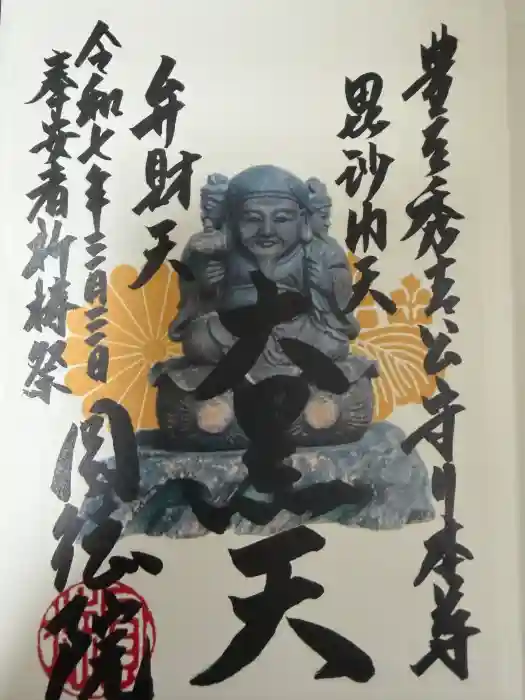 豊臣秀吉公守り本尊
毘沙門天
大黒天
弁財天
令和七年三月三日
奉安者祈祷祭
圓徳院